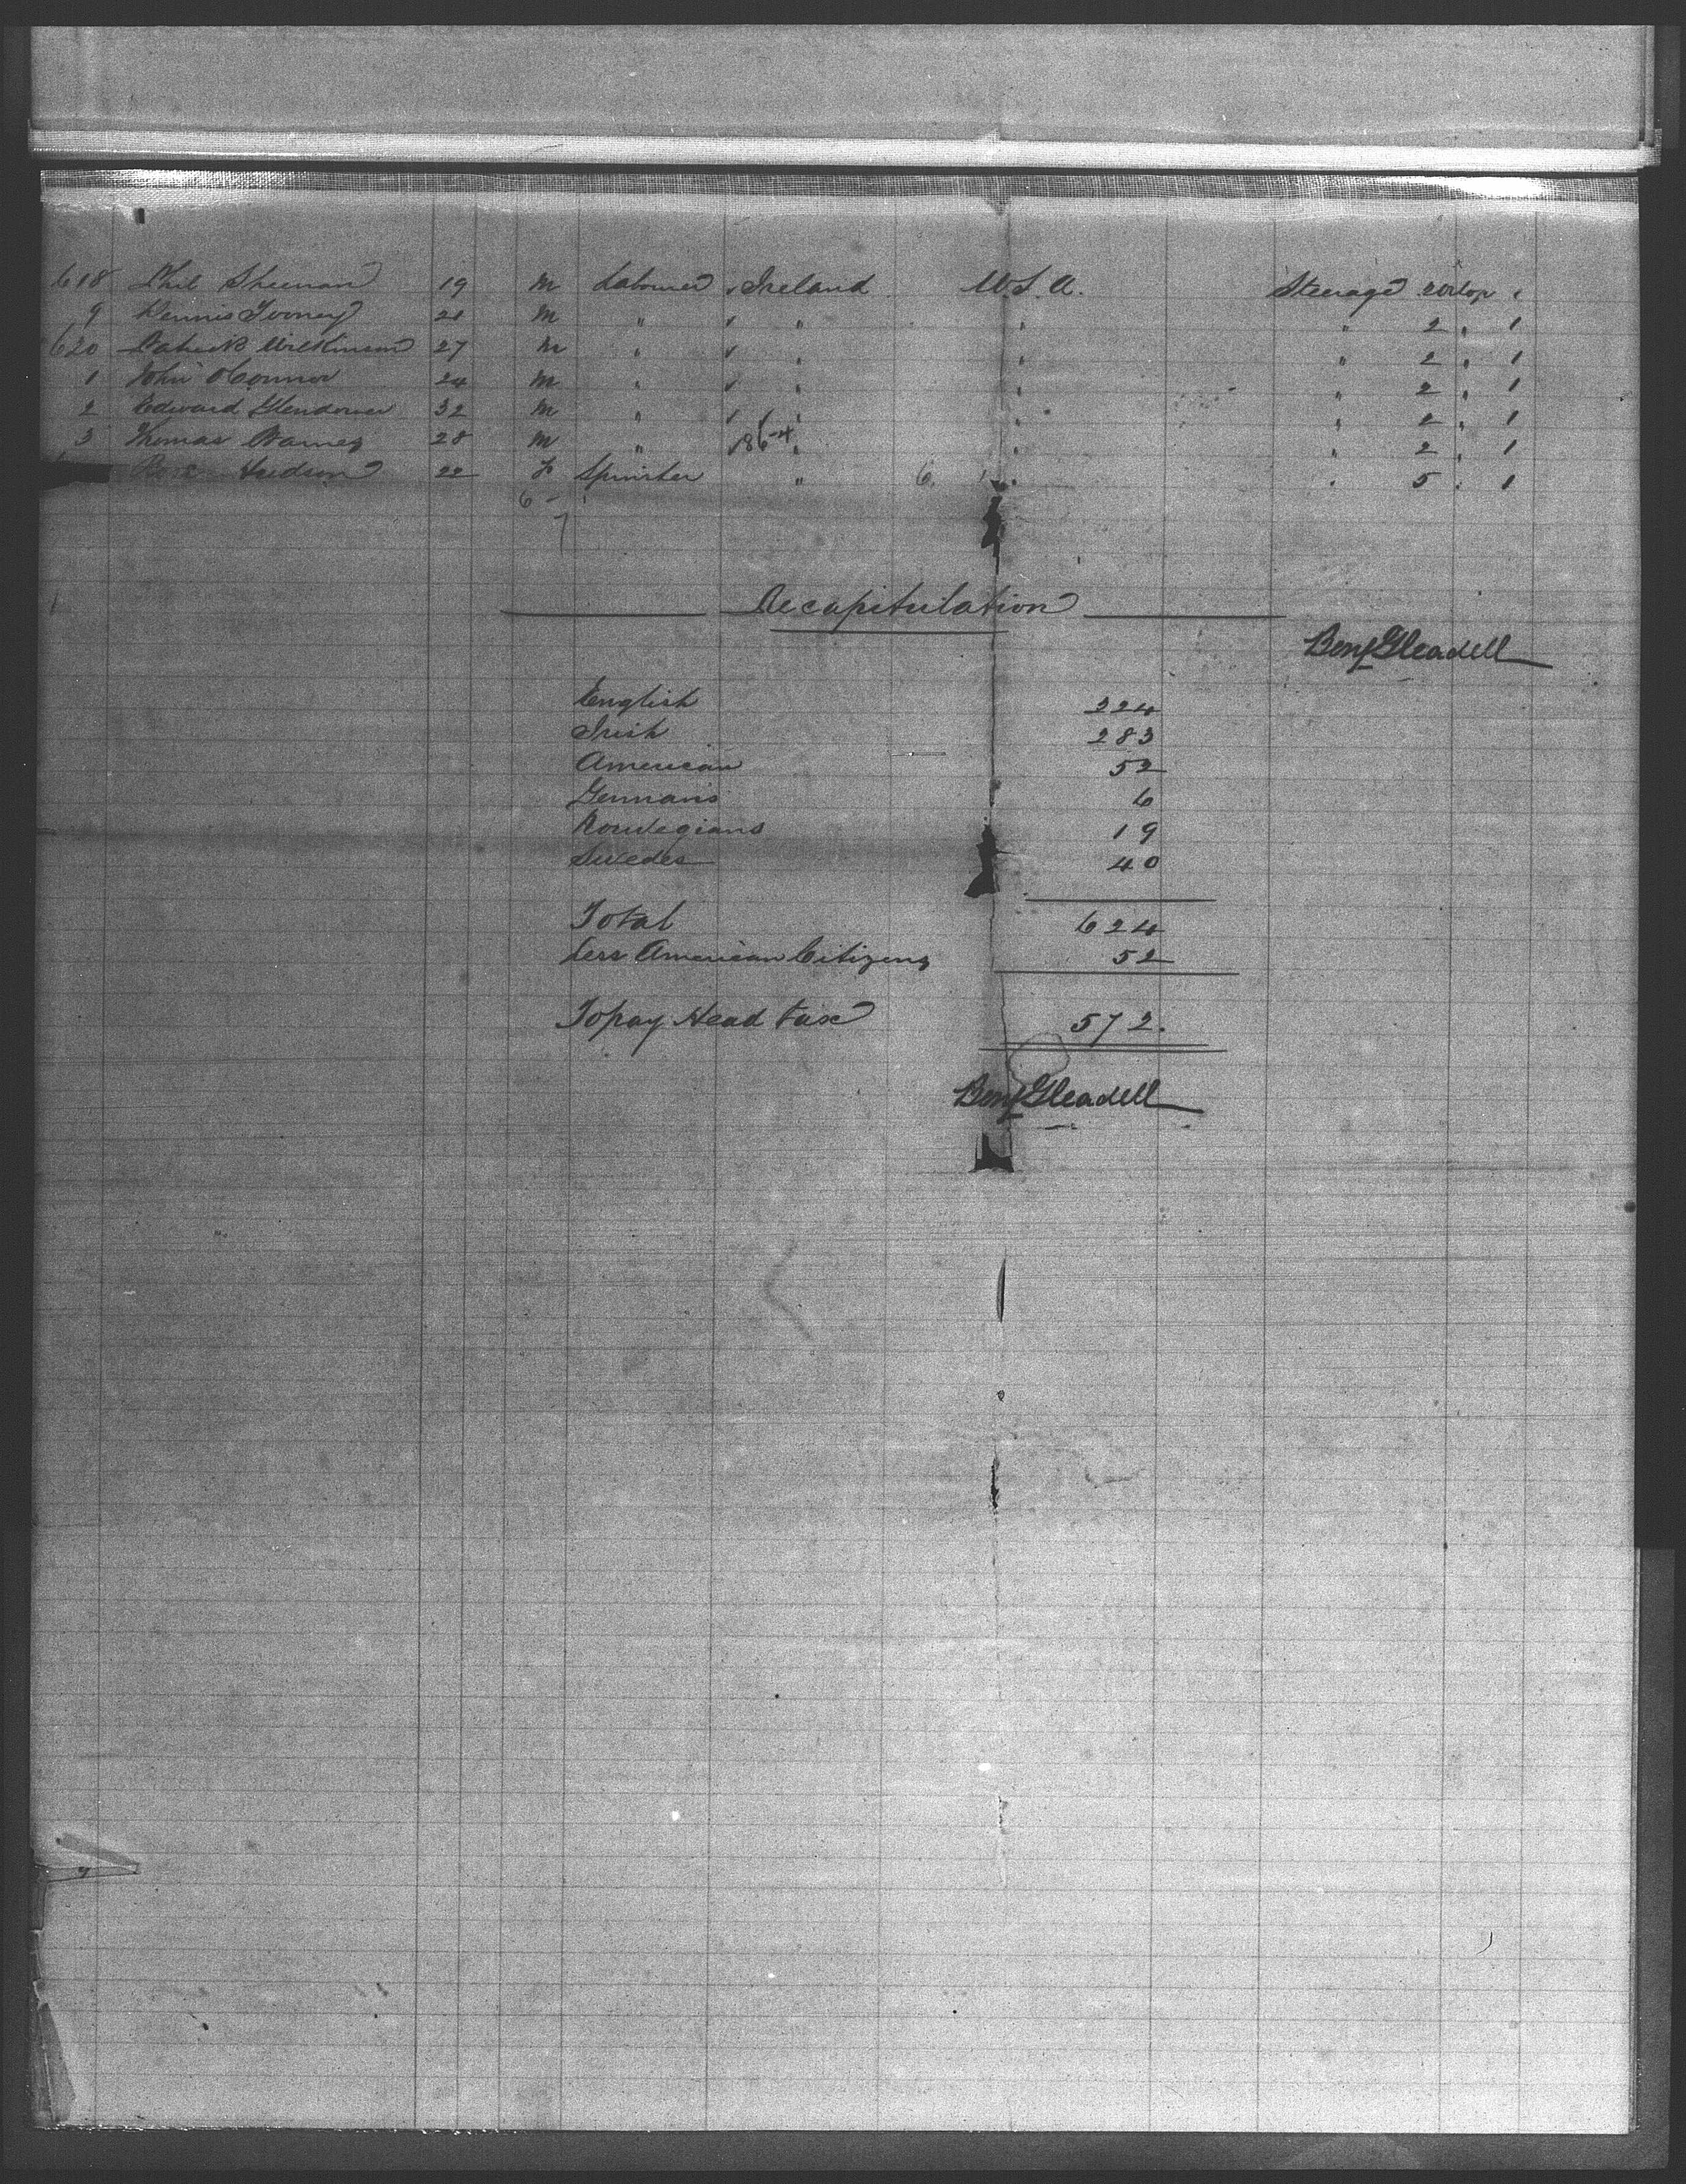 618 Phil Sheenan 19 M Labourer " Ireland U.S.A. Steerage 2 ortop 1
9 Dennis Toomey 21 M " " " " 2 " 1
620 Patrick Wilkinson 27 M " " " " 2 " 1
1 John O'Connor 24 M " " " " 2 " 1
2 Edward Glendower 32 M " " " " 2 " 1
3 Thomas 28 M " " " " 2 " 1
Hudson 22 F Spinster " " " 5 " 1
Recapitulation
Benj Gleadell
English 224
Irish 283
American 52
Germans 6
Norwegians 19
Swedes 40
Total 624
Less American Citizens 52
To pay Head tax 572.
Benj Gleadell